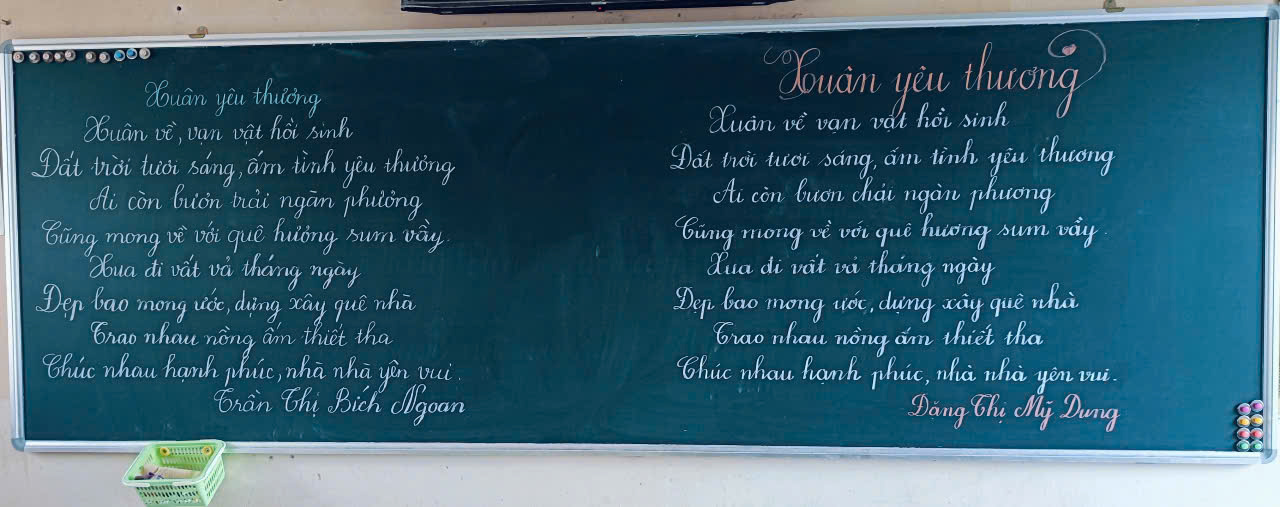 Xuân yêu thương
Xuân về, vạn vật hồi sinh
Đất trời tươi sáng, ấm tình yêu thương
Ai còn bươn trải ngàn phương
Cũng mong về với quê hương sum vầy.
Xua đi vất vả tháng ngày
Đẹp bao mong ước, dựng xây quê nhà
Trao nhau nồng ấm thiết tha
Chúc nhau hạnh phúc, nhà nhà yên vui.
Trần Thị Bích Ngoan
Xuân yêu thương
Xuân về vạn vật hồi sinh
Đất trời tươi sáng, ấm tình yêu thương
Ai còn bươn chải ngàn phương
Cũng mong về với quê hương sum vầy.
Xua đi vất vả tháng ngày
Đẹp bao mong ước, dựng xây quê nhà
Trao nhau nồng ấm thiết tha
Chúc nhau hạnh phúc, nhà nhà yên vui.
Đặng Thị Mỹ Dung